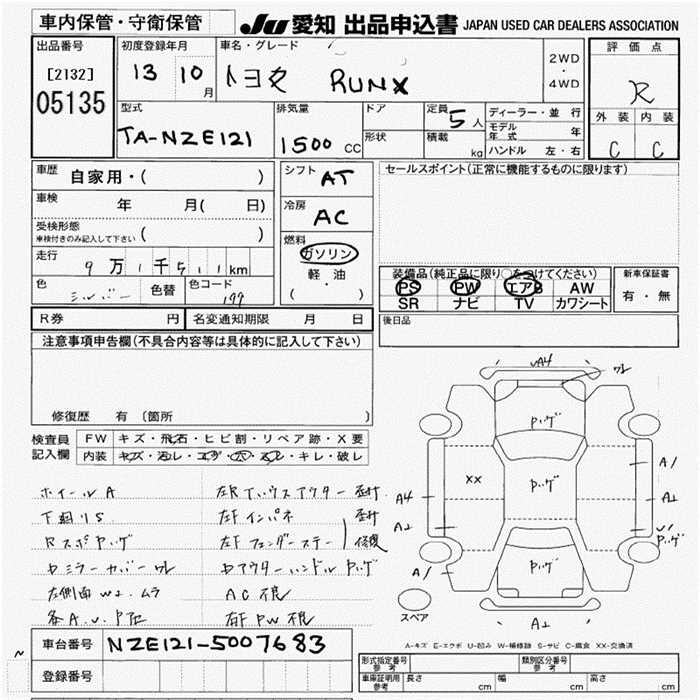 車内保管・守衛保管
JU 愛知 出品申込書 JAPAN USED CAR DEALERS ASSOCIATION
出品番号
[2132]
05135
初度登録年月
13 10月
車名・グレード
トヨタ RUNX
2WD
・
4WD
評価点
R
外装 内装
C C
型式
TA-NZE121
排気量
1500 CC
ドア
形状
定員
5人
積載
kg
ディーラー・並行
モデル年式 年
ハンドル 左・右
車歴
自家用・( )
車検
年 月( 日)
受検形態
車検付きのみ記入して下さい ( )
走行
9万1千511km
色
シルバー
色替
色コード
199
シフト
AT
冷房
AC
燃料
ガソリン
軽・油
( ・ )
セールスポイント(正常に機能するものに限ります)
装備品(純正品に限り○をつけてください)
PS PW エアB AW
SR ナビ TV カワシート
新車保証書
有・無
R券 円
名変通知期限 月 日
後日品
注意事項申告欄(不具合内容等は具体的に記入して下さい)
修復歴 有 〔箇所 〕
検査員記入欄
FW キズ・飛石・ヒビ割・リペア跡・X要
内装 キズ・汚レ・コゲ・穴・スレ・キレ・破レ
ホイールA
下廻りS
左F インパネ
左F フェンダーステー
修復
ドアミラーカバーワレ
アウターハンドル Pハゲ
左側面 W2. ムラ
AC不良
右F PW不良
各A.U.P
XX
A4
Pハゲ
ワレ
A1
A2
スペア
A-キズ E-エクボ U-凹み W-補修跡 S-サビ C-腐食 XX-交換済
車台番号
NZE121-5007683
登録番号
形式指定番号 参考
類別区分番号 参考
車庫証明 参考
長さ cm
幅 cm
高さ cm